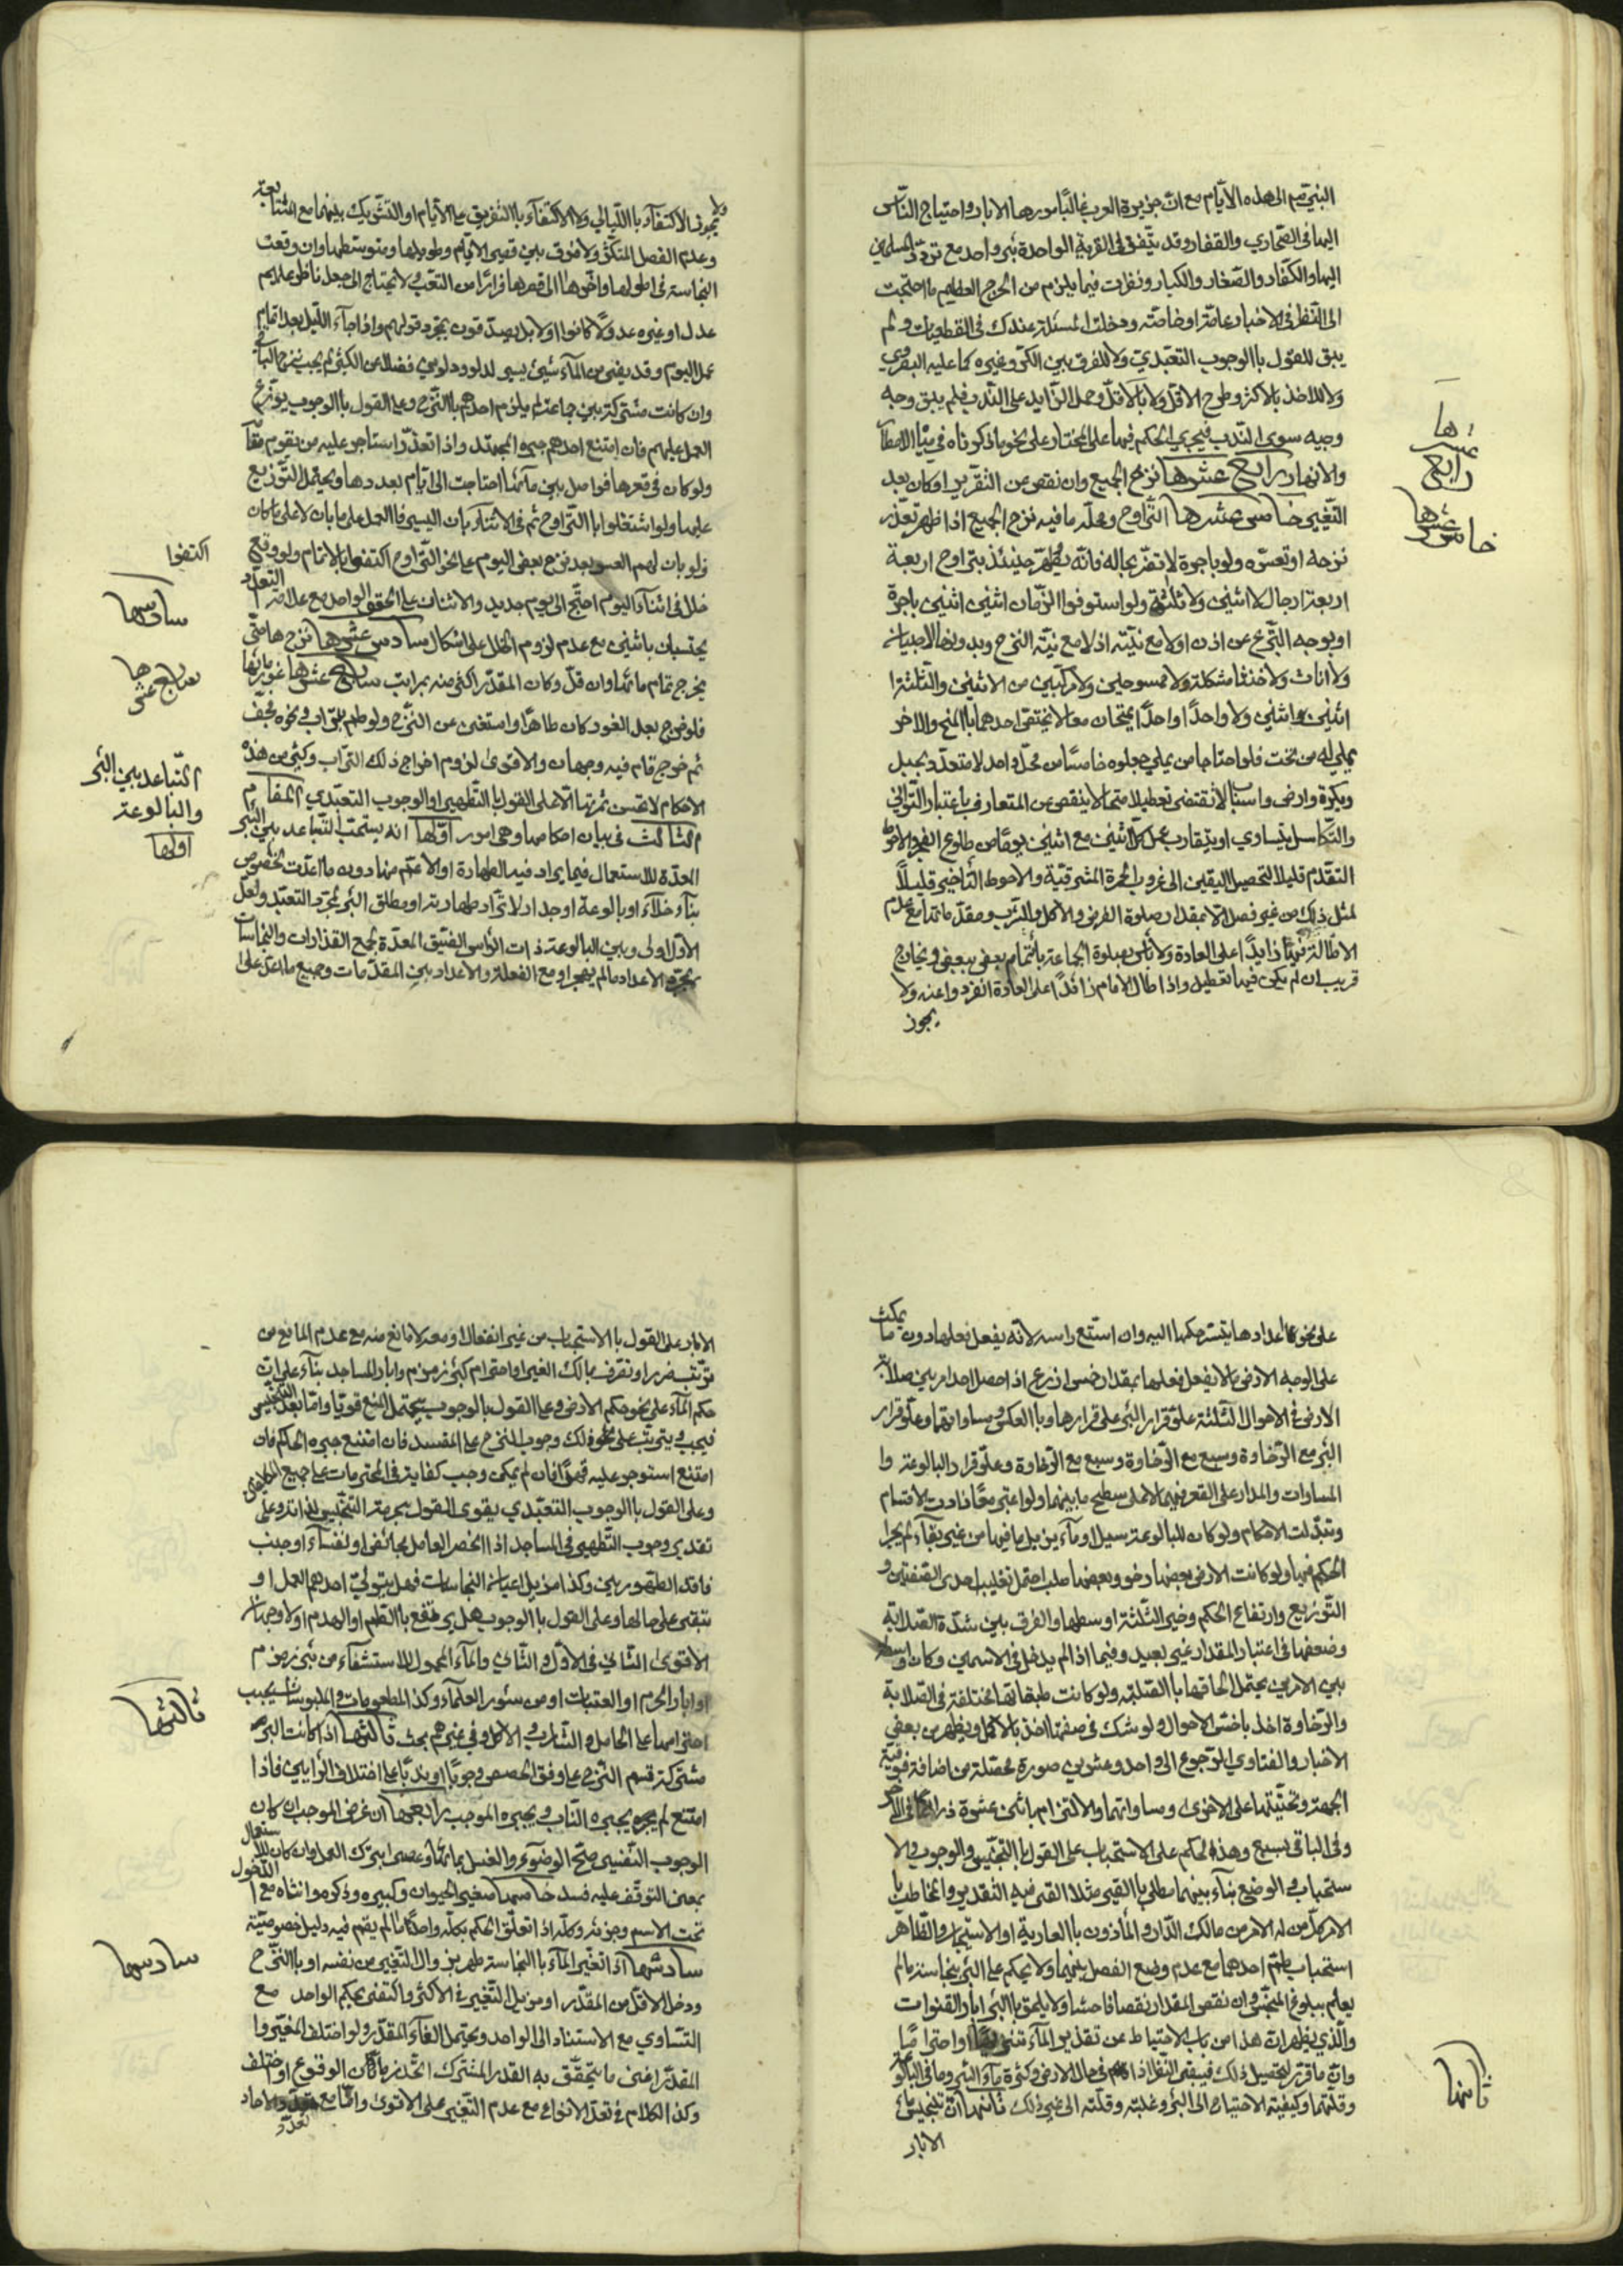 النبي ص الى هذه الأيام مع ان جزيرة العرب غالبًا مورها الابار واحتياج الناس
اليها في الصحاري والقفار وقد يتفق في القرية الواحدة بئر واحد مع تردد المسلمين
اليها والكفار والصغار والكبار ونظرت فيما يلزم من الحرج العظيم ما احتجت
الى النظر في الاخبار عامة او خاصة ودخلت المسئلة عندك في القطعيات ولم
يبق للقول بالوجوب التعبدي ولا للفرق بين الكر وغيره كما عليه البصروي
ولا للاخذ بالاكثر وطرح الاقل ولا بالاقل وحمل الزايد على الندب فلم يبق وجه
وجيه سوى الندب فيجري الحكم فيها على المختار على نحو ما ذكرناه في مياه الامطار
والانهار رابع عشرها نزح الجميع وان نقص من التقدير او كان بعد
التغيير خامس عشرها التراوح وحله ما فيه نزح الجميع اذا ظهر تعذر
نزحه او تعسره ولو باجرة لا تضر بحاله فانه يطهر حينئذ بتراوح اربعة
اربعة رجال لا اثنين ولا ثلثة ولو استوفوا الزمان اثنين اثنين باجرة
او بوجه التبرع عن اذن او لا مع نية اذ لا مع نية النزح وبدونها لا صبيان
ولا اناث ولا خناثا مشكلة ولا ممسوحين ولا مركبين من الاثنين والثلثة
اثنين اثنين ولا واحدًا واحدًا يمتحان معا لا يختص احدهما بالمنح والاخر
يملي له من تحت فلو احتاجا من يملي جعلوه خامسًا من محل واحد لا متعدد بحبل
وبكرة وارض واسباب لا تقتضي تعطيلا متحا لا ينقص عن المتعارف باعتبار التواني
والتكاسل بتساوي او بتقارب عمل كل اثنين مع اثنين يومًا من طلوع الفجر والاحوط
التقدم قليلا لتحصيل اليقين الى غروب الحمرة المشرقية والاحوط التأخير قليلًا
لمثل ذلك من غير فصل الا بمقدار صلوة الفرض والاكل والشرب ومقدماتها مع عدم
الاطالة فيها زايدًا على العادة ولا بأس بصلوة الجماعة بائتمام بعض ببعض وبخارج
قريب ان لم يكن فيها تعطيل واذا طال الامام زائدًا على العادة انفردوا عنه ولا
يجوز
ها
عشر
رابع
خامس عشرها
ولا يجوز الاكتفاء بالليالي ولا الاكتفاء بالتفريق على الايام او التشريك بينهما مع المتابعة
وعدم الفصل المتكثر ولا فرق بين قصير الايام وطويلها ومتوسطها وان وقعت
النجاسة في اطولها واخروها الى قصرها فرارًا من التعب ولا يحتاج الى جعل ناظر عليهم
عدل او غيره عدولًا كانوا او لا بل يصدقون بمجرد قولهم واذا جاء الليل بعد اتمام
عمل اليوم وقد بقي من الماء شيئ يسير لدلو ودلوين فضلا عن الكثير لم يجب نزح الباقي
وان كانت مشتركة بين جماعة لم يلزم احدهم بالنزح وعلى القول بالوجوب يوزع
العمل عليهم فان امتنع احدهم جبره المجتهد واذا تعذر استاجر عليه من يقوم مقامه
ولو كان في قعرها فواصل بين مائها احتاجت الى ايام بعددها ويحتمل التوزيع
عليها ولو اشتغلوا بالتراوح ثم في الاثناء بان اليسير فالعمل على ما بان لا على ما كان
ولو بان لهم العسر بعد نزح بعض اليوم على نحو التراوح اكتفوا بالاتمام ولو وقع
خلل في اثناء اليوم احتج الى يوم جديد والاثنان على الحقو الواحد مع علامة التعدد
يحتسبان باثنين مع عدم لزوم الخلل على اشكال سادس عشرها نزح ها متى
يخرج تمام مائها وان قل وكان المقدر اكثر منه بمراتب سابع عشرها غور مائها
فلو خرج بعد الغور كان طاهرًا واستغنى عن النزح ولو طم بتراب ونحوه فجف
ثم خرج قام فيه وجهان والاقوى لزوم اخراج ذلك التراب وكثير من هذه
الاحكام لا تحسن ثمرتها الا على القول بالتطهير او الوجوب التعبدي المقام
الثالث في بيان احكامها وهي امور اولها انه يستحب التباعد بين البئر
المعدة للاستعمال فيما يراد فيه الطهارة او الاعم منها دون ما اعدت لخصوص
بناء خلاء او بالوعة او جدار لا تراد طهارته او مطلق البئر لمجرد التعبد ولعل
الاول اولى وبين البالوعة ذات الرأس الضيق المعدة لجمع القذارات والنجاسات
بمجرد الاعداد ما لم يهجر او مع الفعلة والاعداد بين المقدمات وجميع ما اعد على
اكتفوا
سادسها
سابع عشرها
التباعد بين البئر
والبالوعة
اولها
على نحو كاعدادها يتسر حكمها اليه وان اتسع راسه لانه يفعل فعلها دون ما يمكث
على الوجه الارض بالا يفعل فعلها بمقدار خمس اذرع اذا حصل احد امرين صلابة
الارض في الاحوال الثلثة علو قرار البئر على قرارها وبالعكس ومساواتهما وعلو قرار
البئر مع الرخاوة وسبع مع الرخاوة وسبع مع الرخاوة وعلو قرار البالوعة وا
المساوات والمدار على القعر فيهما لا على سطح ما بينهما ولو اعتبر معًا زادت الاقسام
وتبدلت الاحكام ولو كان للبالوعة سيل او ماء يزيل ما فيها من غير بقاء لم يجرا
الحكم فيها ولو كانت الارض بعضها رخو وبعضها صلب احتمل تغليب احدى الصفتين و
التوزيع وارتفاع الحكم وخير الثلثة اوسطها والفرق بين شدة الصلابة
وضعفها في اعتبار المقدار غير بعيد وفيما اذا لم يدخل في الاسمين وكان واسطة
بين الامرين يحتمل الحاقها بالصلبة ولو كانت طبقاتها مختلفة في الصلابة
والرخاوة اخذ باخس الاحوال ولو شك في صفتها اخذ بالاكمل ويظهر من بعض
الاخبار والفتاوي الرجوع الى واحد وعشرين صورة محصلة من اضافة فوقية
الجهة وتحتيتها على الاخرى ومساواتهما والالتزام باثني عشرة ذراعًا في الآخر
وفي الباقي بسبع وهذا الحكم على الاستحباب على القول بالتنجيس والوجوب والا
ستحباب في الوضع بناء بينهما مطلق بالقير مثلا القى فيه التقدير والمخاطب با
الامر كل من له الامر من مالك الدار والمأذون بالعارية او الاستيجار والظاهر
استحباب طم احدهما مع عدم وضع الفصل بينهما ولا يحكم على البئر بنجاسة ما لم
يعلم ببلوغ المنجس وان نقص المقدار نقصا فاحشا ولا يلحق بالبئر ابار القنوات
والذي يظهر ان هذا من باب الاحتياط عن تقذير الماء تنزيها او احترامًا
وان ما قرر لتحصيل ذلك فيبقى النظر اذا في حال الارض وكثرة ماء البئر وما في البالوعة
وقلتهما وكيفية الاحتياج الى البئر وغلبته وقلته الى غير ذلك ثانيها ان تنجيس ماء
الابار
ثانيها
الابار على القول بالاستحباب من غير انفعال او معه لا مانع منه مع عدم المانع من
ترتب ضرر او تصرف بمالك الغير او احترام كبئر زمزم وابار المساجد بناء على ان
حكم الماء على نحو حكم الارض وعلى القول بالوجوب يحتمل المنع قويا واما بعد التنجيس
فيجب ويترتب على نحو ذلك وجوب النزح على المفسد فان امتنع جبره الحاكم فان
امتنع استوجر عليه قهرًا فان لم يمكن وجب كفاية في المحترمات على جميع المكلفين
وعلى القول بالوجوب التعبدي يقوى القول بحرمة التنجيس لذاته وعلى
تقدير وجوب التطهير في المساجد اذا انحصر العامل بحائض او نفساء او جنب
فاقد الطهورين وكذا مزيل اعيان النجاسات فهل يتولى احدهم العمل او
تبقى على حالها وعلى القول بالوجوب هل يرتفع بالطم او الهدم او لا وجهان
الاقوى الثاني في الاول والثاني والماء المحمول للاستشفاء من بئر زمزم
او ابار الحرم او العتبات او من سئور العلماء وكذا المطعومات والملبوسات يجب
احترامها على الحامل والشارب والاكل وفي غيرهم بحث ثالثها اذا كانت البئر
مشتركة قسم النزح على وفق الحصص وجوبًا او ندبًا على اختلاف الرايين فاذا
امتنع لم يجبره النايب ويجبره الموجب رابعها ان غرض الموجب ان كان
الوجوب النفسي صح الوضوء والغسل بمائها وعصى بترك العمل وان كان للاستعمال
بمعنى التوقف عليه فسد خامسها صغير الحيوان وكبيره وذكره وانثاه مع الدخول
تحت الاسم وجزئه وكله اذا تعلق الحكم بكله واحد ما لم يقم فيه دليل خصوصية
سادسها اذا تغير الماء بالنجاسة طهر بزوال التغيير من نفسه او بالنزح
ودخل الاقل من المقدر او مزيل التغيير في الاكثر واكتفى بحكم الواحد مع
التساوي مع الاستناد الى الواحد ويحتمل الغاء المقدر ولو اختلف المغير وا
المقدر اغنى ما يتحقق به القدر المشترك اتحد زمان الوقوع او اختلف
وكذا الكلام في تعدد الانواع مع عدم التغيير على الاقوى واما مع تعدد الاحاد
ثالثها
سادسها